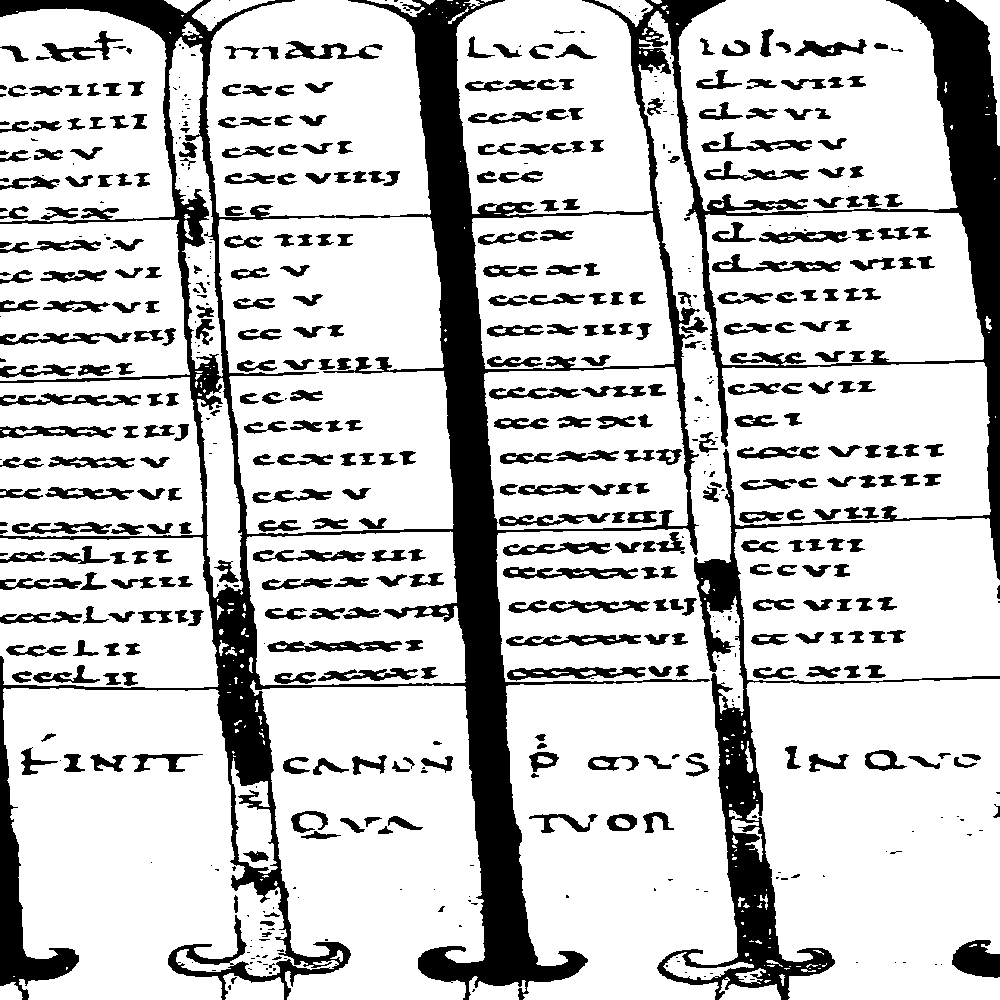 math marc LUCA IOhAN
ccxIIII cxcv ccxcI cLxvIIII
ccxIIII cxcv ccxcI cLxvI
ccxv cxcvI ccxcII cLxxv
ccxvIII cxcvIIIJ ccc cLxxvI
ccxx cc cccII cLxxvIII
ccxxv ccIIII cccx cLxxxIIII
ccxxvI ccv cccxI cLxxxvIII
ccxxvI ccv cccxIII cxcIIII
ccxxvIIJ ccvI cccxIIIJ cxcvI
ccxxxI ccvIIII cccxv cxcvII
ccxxxxII ccx cccxvIII cxcvII
ccxxxxIIIJ ccxII cccxxI ccI
ccxxxxv ccxIIII cccxxIIIJ cxcvIIII
ccxxxxvI ccxv cccxxvII cxcvIIII
cccxxxxvI ccxv cccxvIIIIJ cxcvIII
cccxLIII ccxxIII cccxxvIII ccIIII
cccxLvIII ccxxvII cccxxxII ccvI
cccxLvIIIJ ccxxvIIJ cccxxxIIJ ccvIII
cccLII ccxxxI cccxxxvI ccvIIII
cccLII ccxxxI cccxxxvI ccxII
FINIT CANON PMUS IN QUO
QUA TUOR